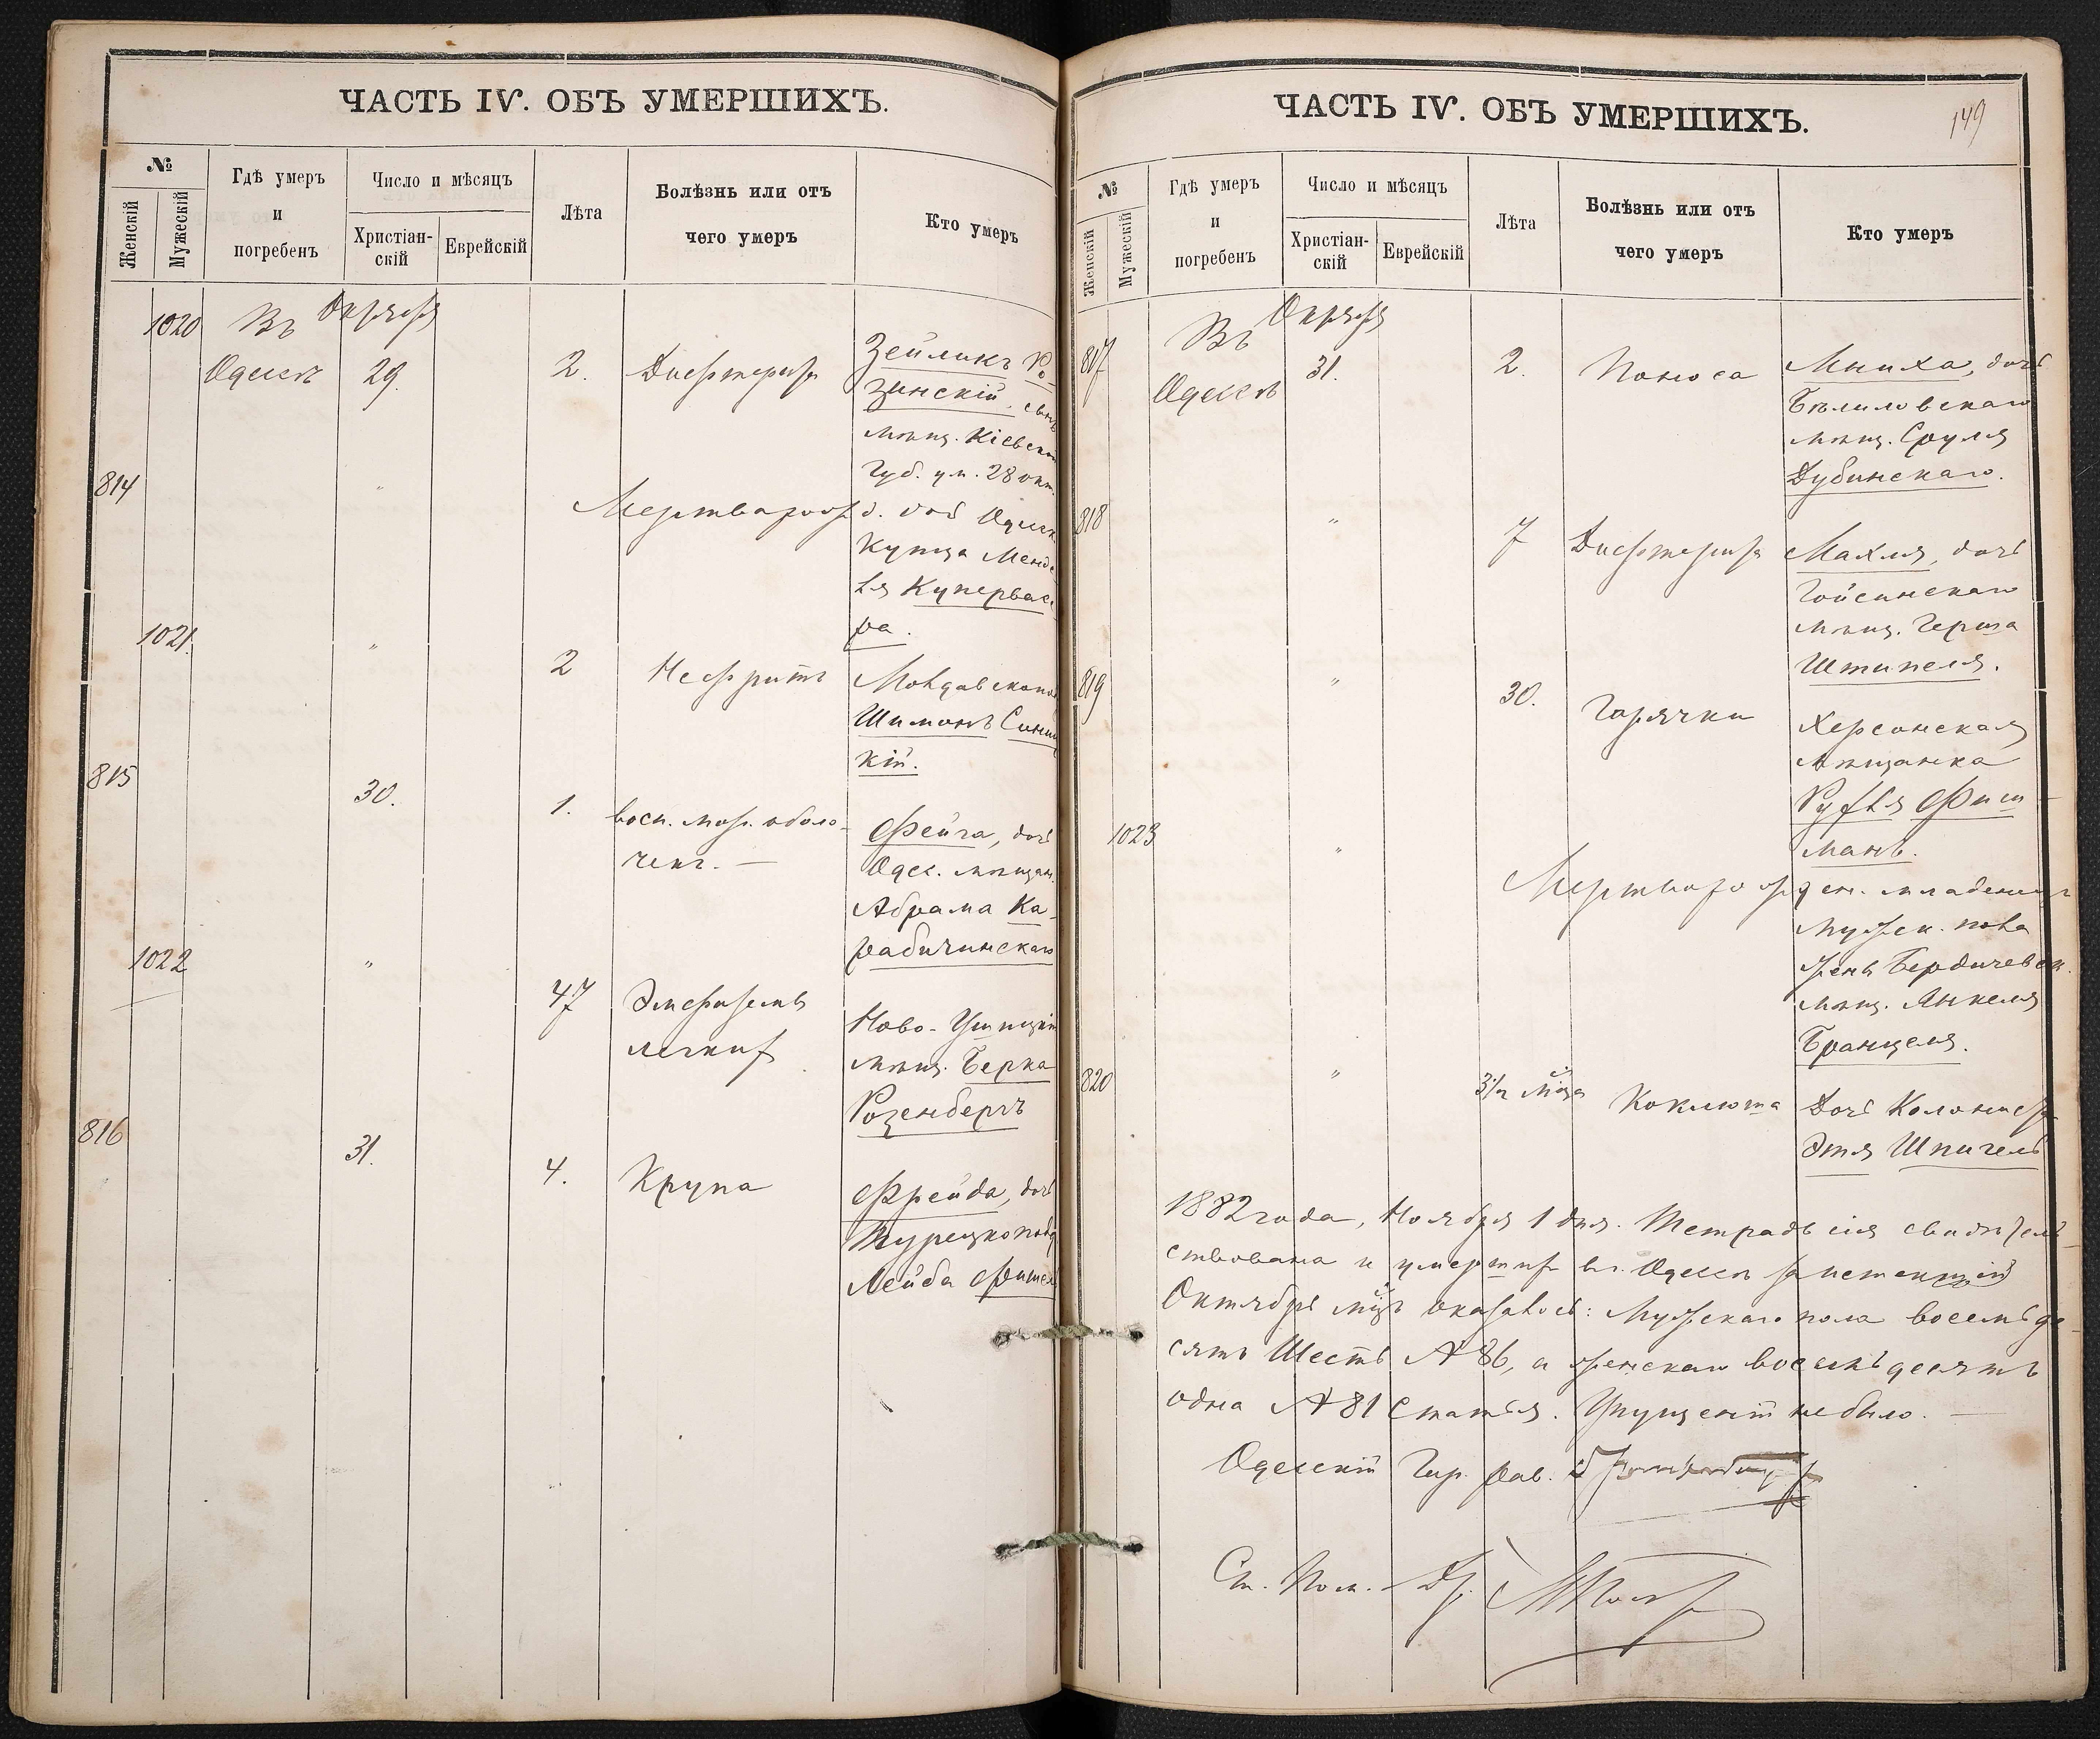 ЧАСТЬ IV. ОБЪ УМЕРШИХЪ.
№
Женскій
Мужескій
Гдѣ умеръ
и
погребенъ
Число и мѣсяцъ
Христіан-
скій
Еврейскій
Лѣта
Болѣзнь или отъ
чего умеръ
Кто умеръ
1020
Въ
Одессѣ
29.
2.
Дифтерита
Зейликъ Ро-
зинскій, сынъ
мѣщ. Кіевской
Губ. ум. 28 окт.
814
"
Мертворожд. дочь Одесск.
Купца Менде-
ля Купервас-
ра.
1021.
"
2
Нефритъ
Шимонъ
кій.
815
30.
1.
восп. мозг. оболо-
чекъ. —
Фейга, дочь
Одес. мѣщан.
Абрама Ка-
рабичинскаго
1022
"
47
Эмфиземы
легкихъ
Ново-Ушицкій
мѣщ. Берка
Розенбергъ
816
31.
4.
Крупа
Фрейда, дочь
Турецкоподд.
Лейба
ЧАСТЬ IV. ОБЪ УМЕРШИХЪ.
149
№
Женскій
Мужескій
Гдѣ умеръ
и
погребенъ
Число и мѣсяцъ
Христіан-
скій
Еврейскій
Лѣта
Болѣзнь или отъ
чего умеръ
Кто умеръ
817
Въ
Одессѣ
31.
2.
Поноса
Мниха, дочь
Бѣлиловскаго
мѣщ. Сруля
Дубинскаго.
818
"
7
Дифтерита
Махля, дочь
Гойсинскаго
мѣщ. Герша
Штипеля.
819
"
30.
Горячки
Херсонская
мѣщанка
Рухля Фиш-
манъ.
1023
"
Мертворожден. младенецъ
мужск. пола
мѣщ. Янкеля
Бранцеля.
820
"
3½ мѣс.
Коклюша
Дочь Колонист.
Этя Шпигель
1882 года, Ноября 1 дня. Тетрадь сія свидѣтель-
ствована и умершихъ въ г. Одессѣ за истекшій
Октябрь мѣс. оказалось: Мужскаго пола восемьде-
сятъ Шесть № 86, а женскаго восемьдесятъ
одна № 81 Статья. Упущеній не было. —
Одесскій Гор. Рав.
Ст. Пом.